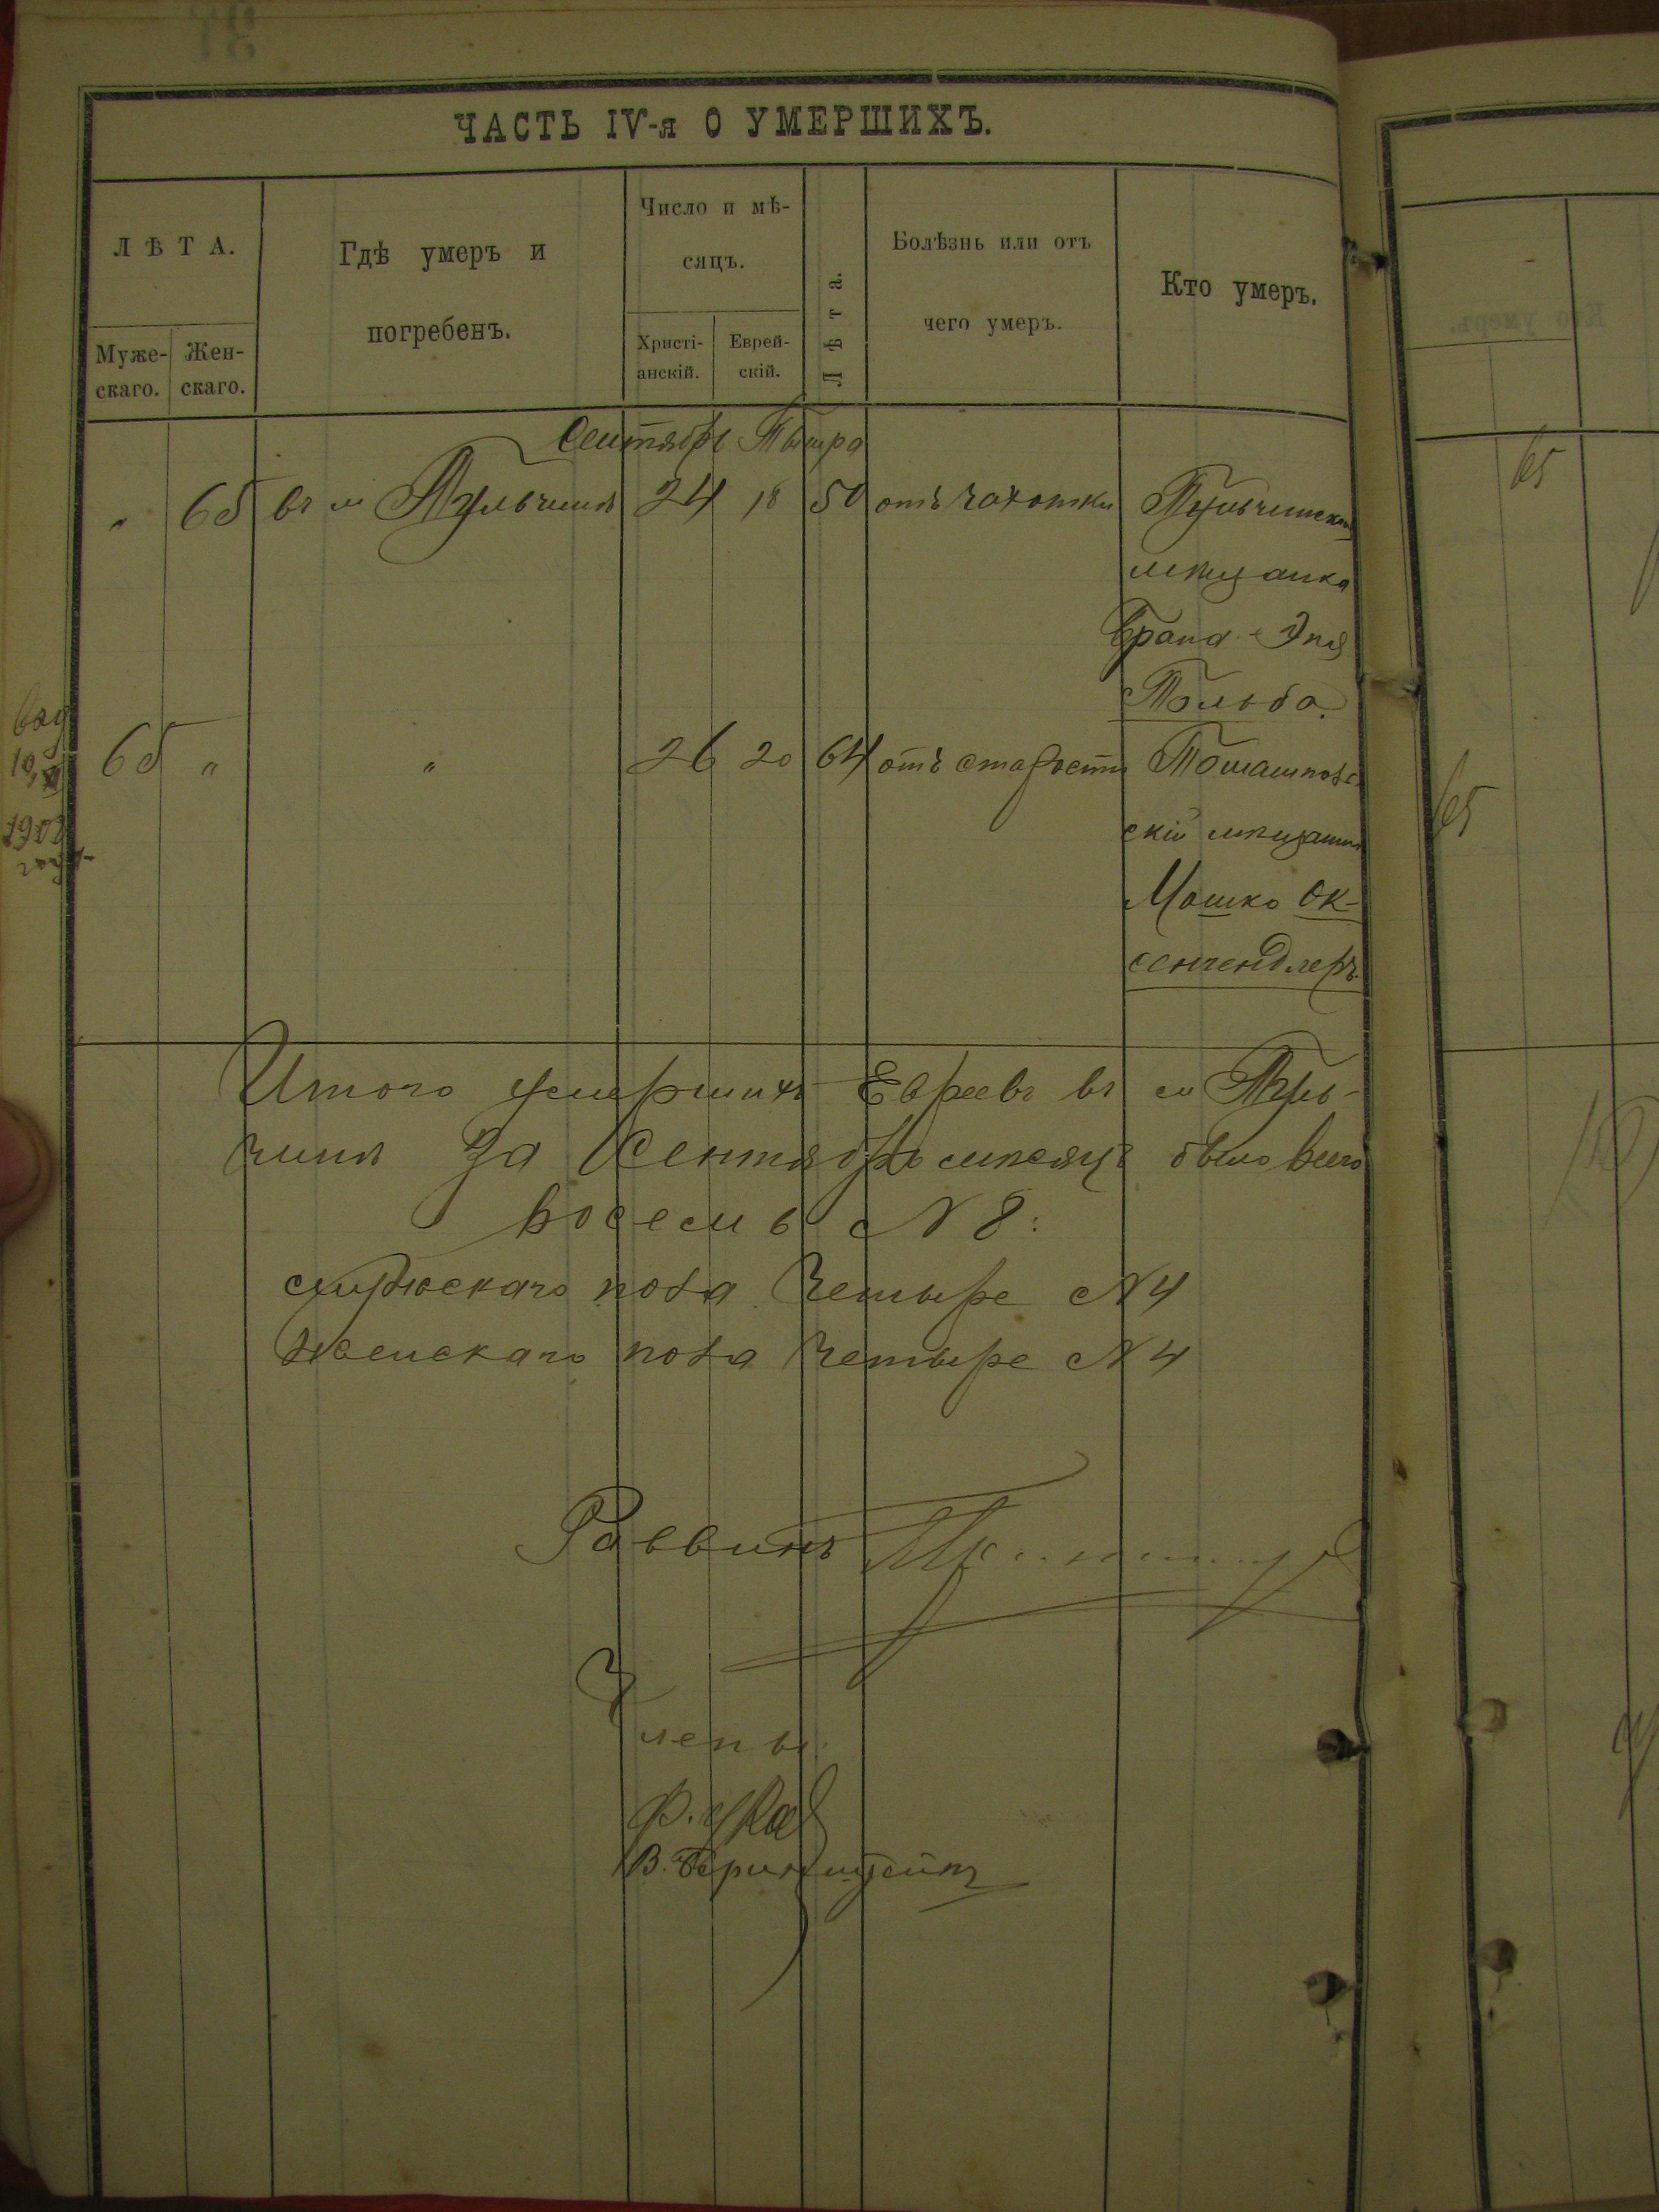 ЧАСТЬ IV-я О УМЕРШИХЪ.
ЛѢТА.
Муже-
скаго.
Жен-
скаго.
Гдѣ умеръ и
погребенъ.
Число и мѣ-
сяцъ.
Христі-
анскій.
Еврей-
скій.
Лѣта.
Болѣзнь или отъ
чего умеръ.
Кто умеръ.
Сентябрь Тышра
" 65 въ м Тульчинѣ 24 18 50 отъ чахотки Тульчинская
мѣщанка
Брана
Гольба.
65 " " 26 20 64 отъ старости Томашполь-
скій мѣщанинъ
Мошко Ок-
сенгендлеръ.
1902
Итого умершихъ Евреевъ въ м Туль-
чинѣ За Сентябрь мѣсяцъ было всего
восемь № 8:
мужескаго пола Четыре № 4
женскаго пола Четыре № 4
Раввинъ
Члены:
65
65